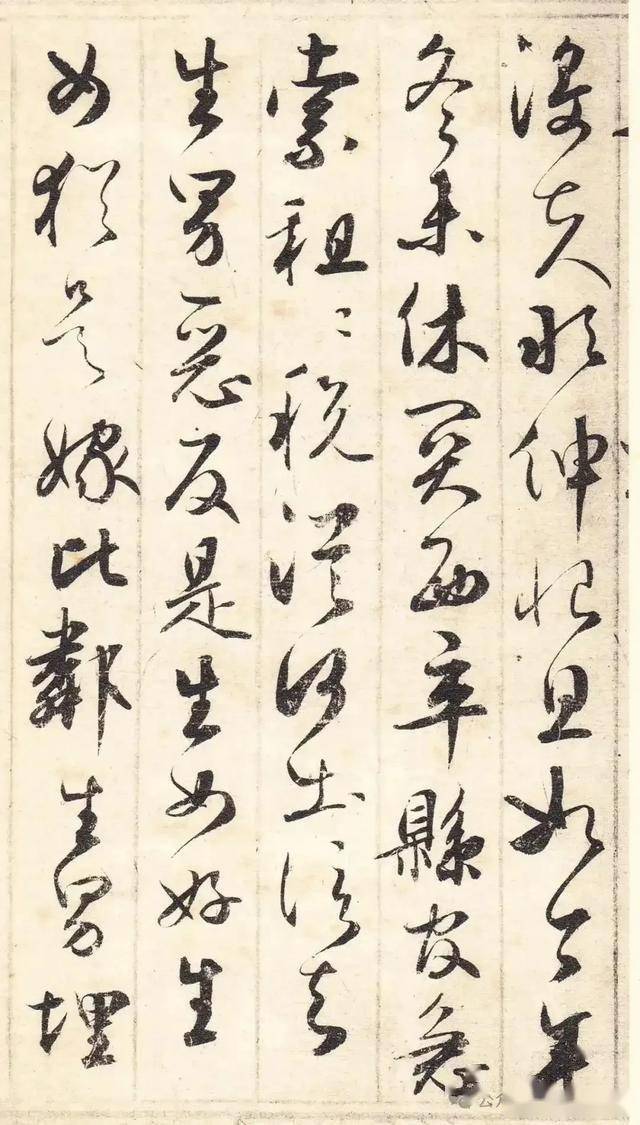 役夫敢伸恨且如今年
冬未休關西卒縣官急
索租〻税從何出信知
生男惡反是生女好生
女猶是嫁比鄰生男埋